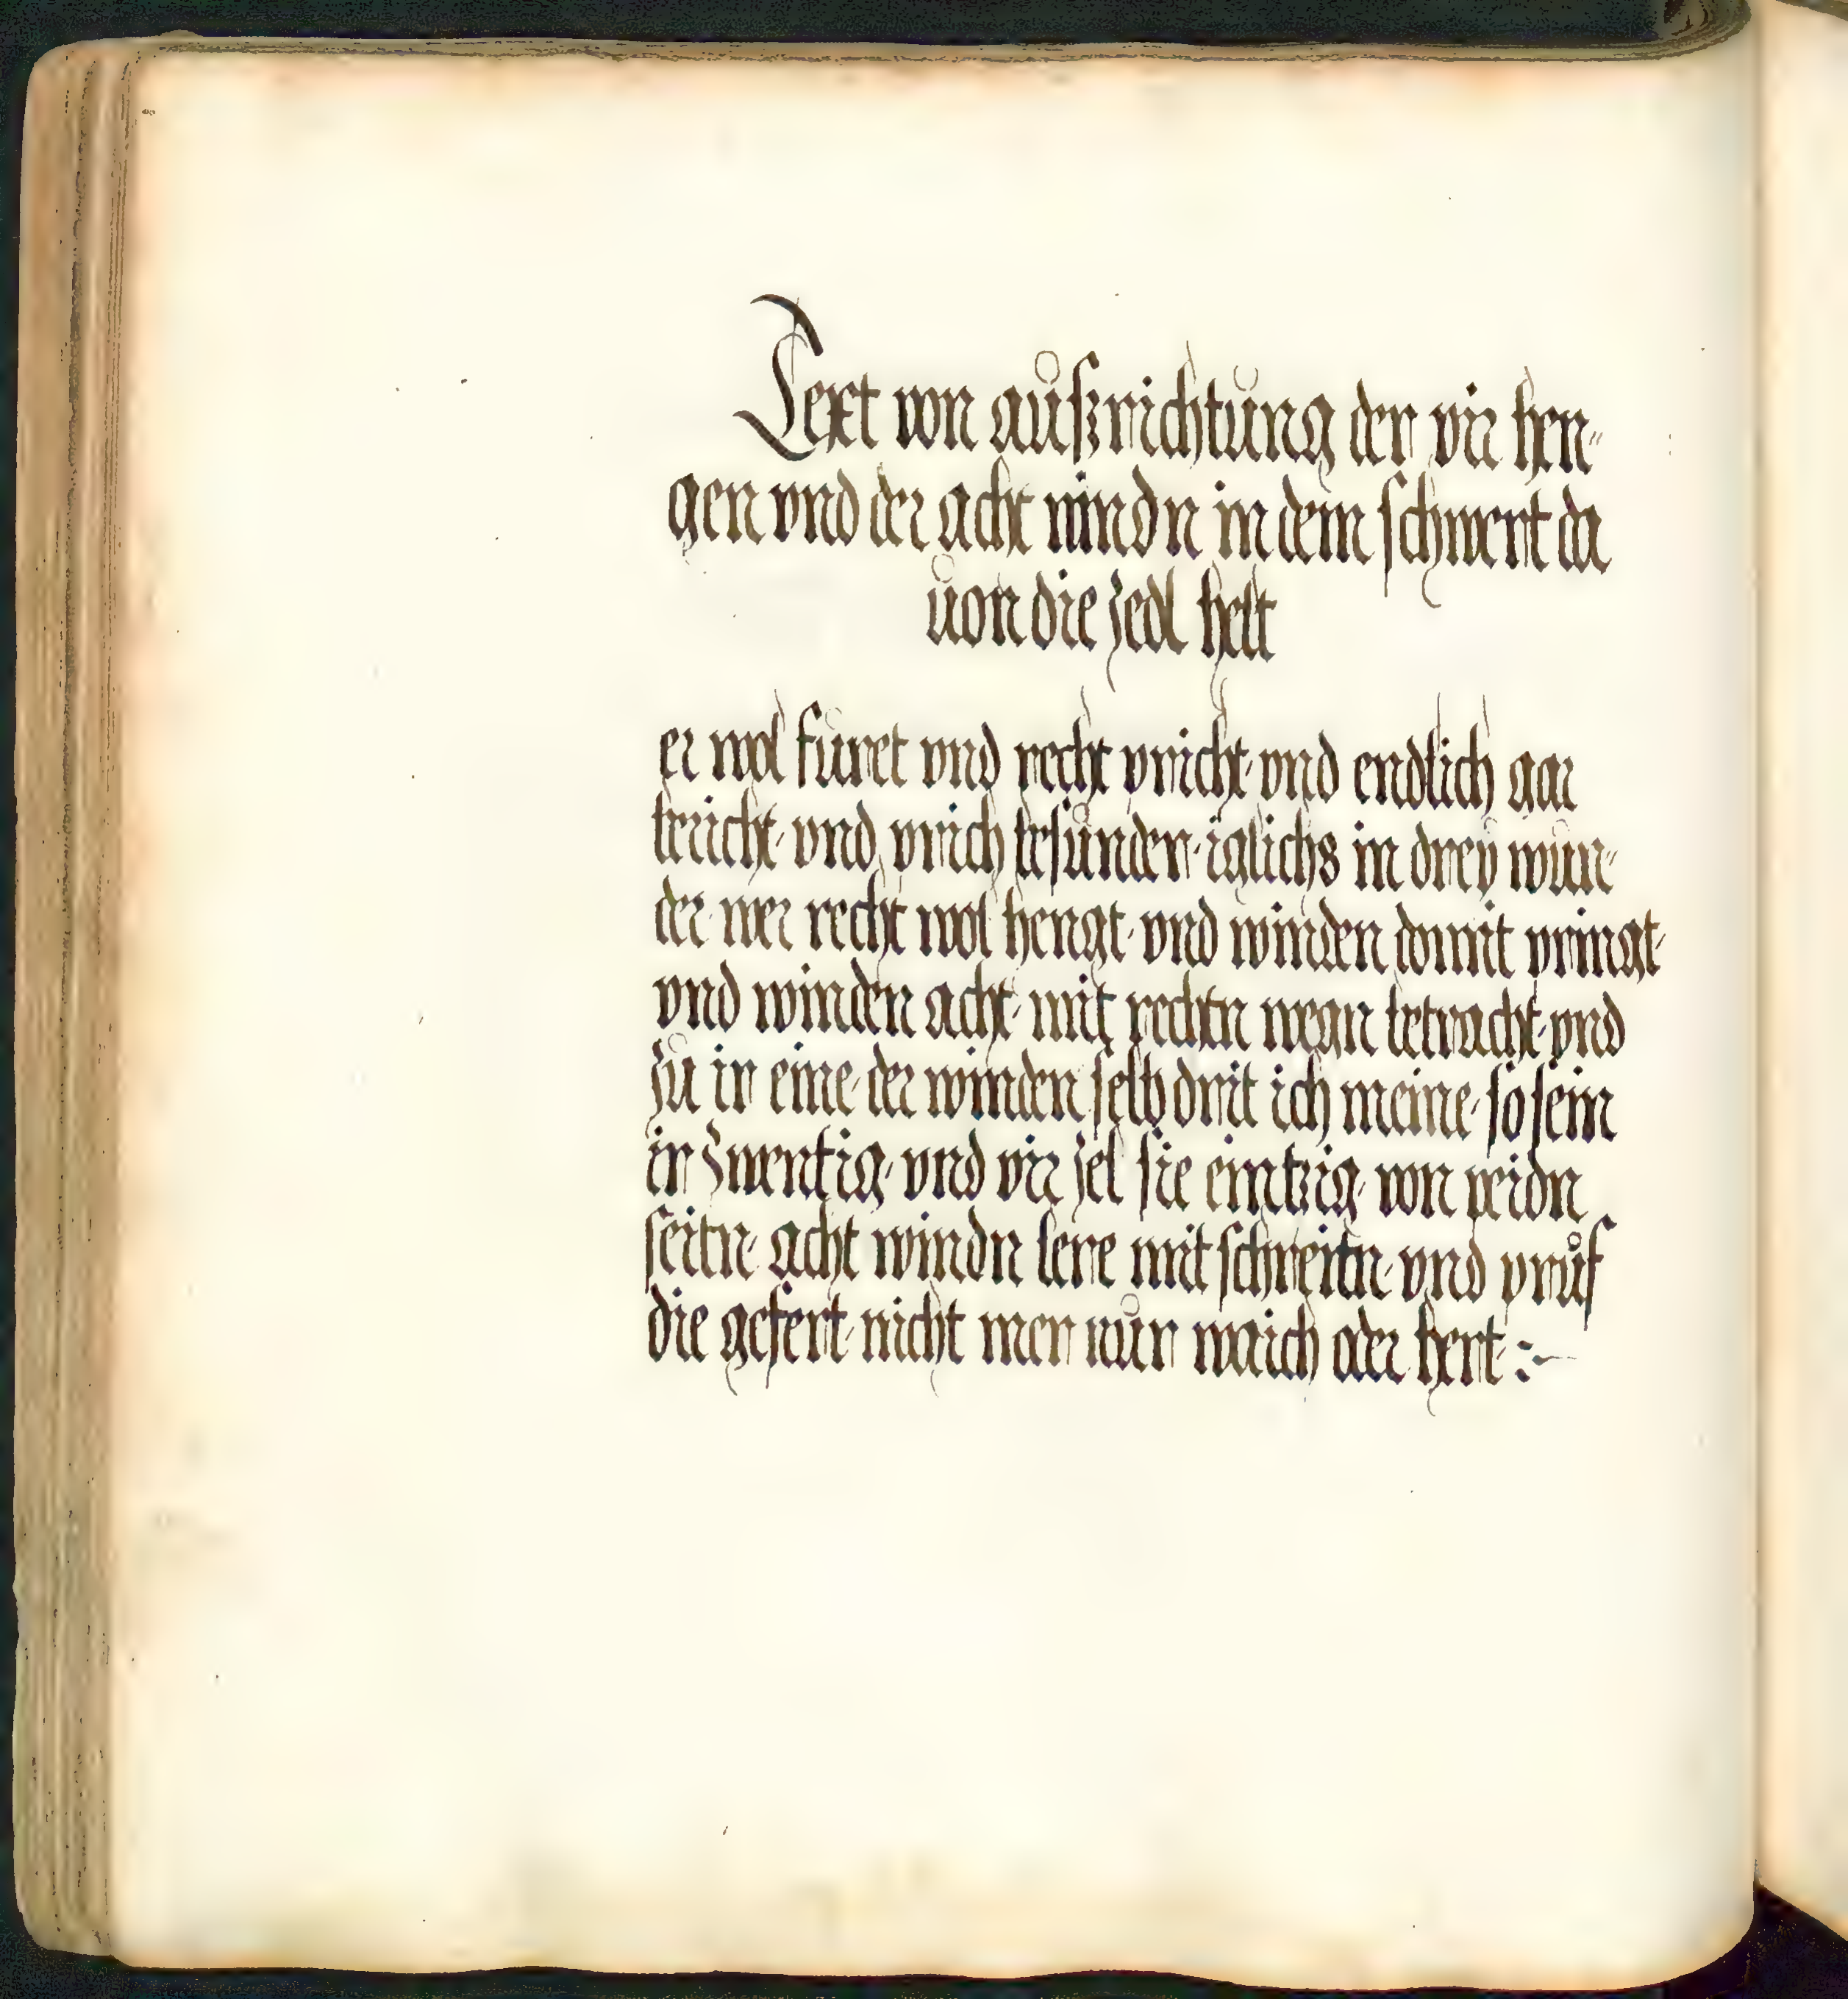 Text von aůßrichtůng der vir hen-
gen vnd der acht windn in dem schwert da
ůon die zedl helt
er wol fůret vnd recht pricht vnd endlich gar
bericht vnd prich besůnder iglichs in dreÿ wun-
der wer recht wol hengt vnd winden domit pringt
vnd winden acht mit rechtn wegn betracht vnd
zů ir eine der winden selb drit ich meine so sein
ir zwentzig vnd vir zel sie eintzig von peidn
seitn acht windn lere mit schreitn vnd průf
die gefert nicht mer nůr waich oder hert